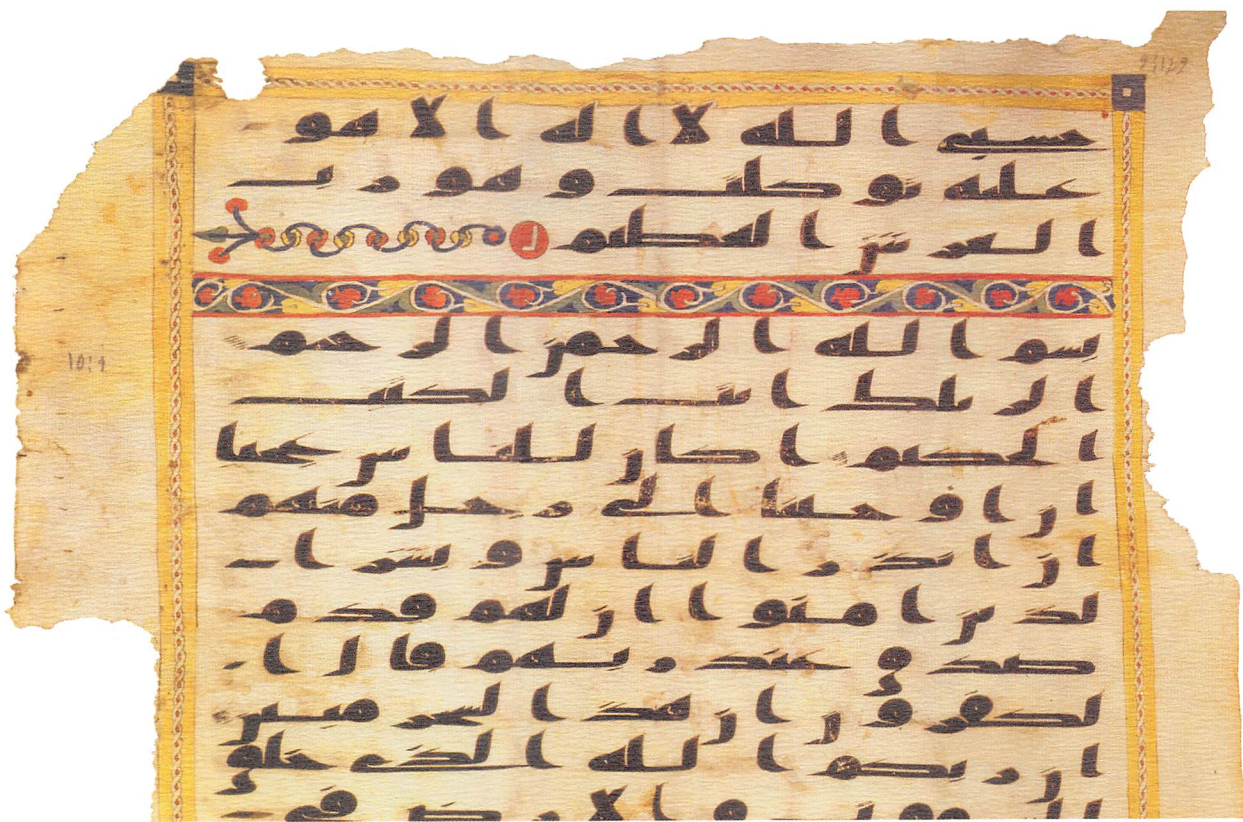 9:129
حسبي الله لا اله الا هو
عليه توكلت وهو رب
العرش العظيم
بسم الله الرحمن الرحيم
الر تلك ايت الكتب
10:1
الحكيم اكان للناس عجبا
ان اوحينا الى رجل منهم
ان انذر الناس وبشر ا
لذين امنوا ان لهم قدم
صدق عند ربهم قال ا
لكفرون ان هذا لسحر مبين
ان ربكم الله الذي خلق